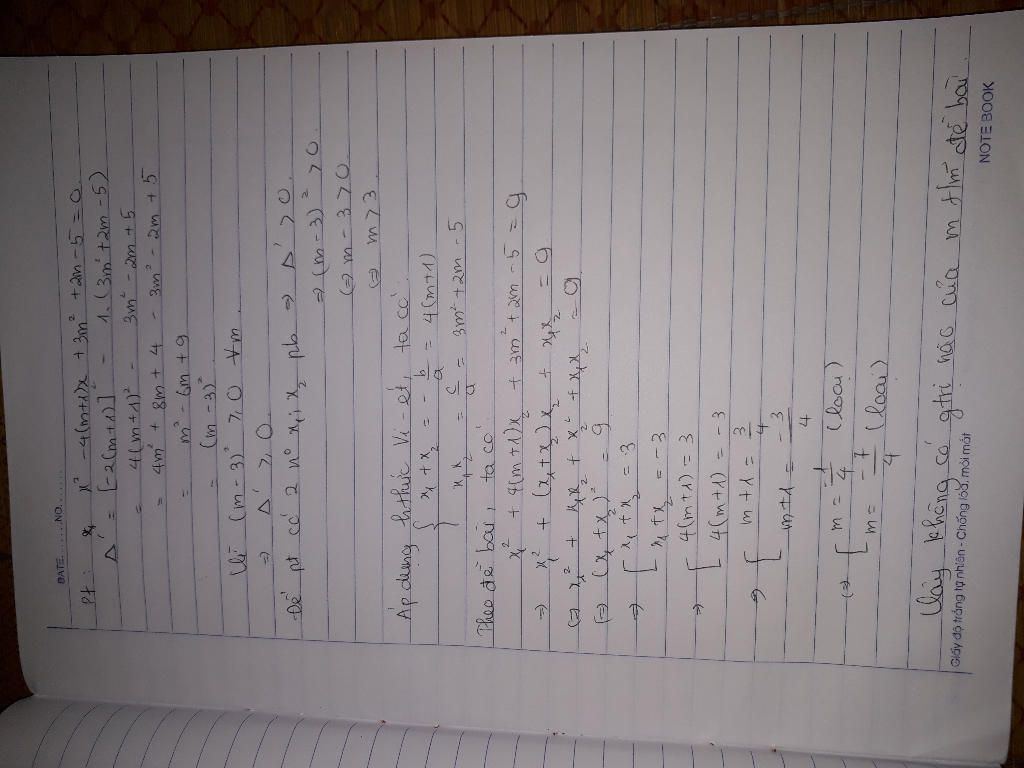 DATE.........NO.........
Pt : x² - 4(m+1)x + 3m² + 2m - 5 = 0
Δ' = [-2(m+1)]² - 1.(3m² + 2m - 5)
= 4(m+1)² - 3m² - 2m + 5
= 4m² + 8m + 4 - 3m² - 2m + 5
= m² - 6m + 9
= (m - 3)²
Vì (m - 3)² ⩾ 0 ∀m
⇒ Δ' ⩾ 0
Để pt có 2 n⁰ x₁; x₂ pb ⇒ Δ' > 0
⇒ (m - 3)² > 0
⇔ m - 3 > 0
⇔ m > 3
Áp dụng h.thức Vi-ét, ta có:
{ x₁ + x₂ = -b/a = 4(m+1)
x₁x₂ = c/a = 3m² + 2m - 5
Theo đề bài, ta có:
x₁² + 4(m+1)x₂ + 3m² + 2m - 5 = 9
⇒ x₁² + (x₁ + x₂)x₂ + x₁x₂ = 9
⇔ x₁² + x₁x₂ + x₂² + x₁x₂ = 9
⇔ (x₁ + x₂)² = 9
⇒ [ x₁ + x₂ = 3
x₁ + x₂ = -3
⇒ [ 4(m+1) = 3
4(m+1) = -3
⇒ [ m + 1 = 3/4
m + 1 = -3/4
⇔ [ m = -1/4 (loại)
m = -7/4 (loại)
Vậy không có gtrị nào của m t/m đề bài.
Giấy độ trắng tự nhiên - Chống lóa, mỏi mắt
NOTE BOOK